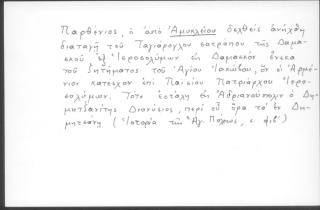 Παρθένιος, ὁ ἀπό Ἀμυκλείου δεχθείς ἀνήχθη
διαταγῇ τοῦ Ταγιάρογλου σατράπου τῆς Δαμα-
σκοῦ ἐξ Ἱεροσολύμων εἰς Δαμασκόν ἕνεκα
τοῦ ζητήματος τοῦ Ἁγίου Ἰακώβου, ὅν οἱ Ἀρμέ-
νιοι κατέσχον ἐπί Παϊσίου Πατριάρχου Ἱερο-
σολύμων. Τότε ἐστάλη εἰς Ἀδριανούπολιν ὁ Δη-
μητσανίτης Διονύσιος, περί οὗ ὅρα τό ἐν Δη-
μητσάνῃ (Ἱστορία τῆς Ἁγ. Πόλεως, σ.